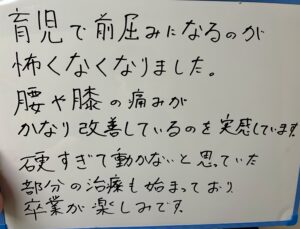 育児で前屈みになるのが
怖くなくなりました。
腰や膝の痛みが
かなり改善しているのを実感しています。
硬すぎて動かないと思っていた
部分の治療も始まっており
卒業が楽しみです。